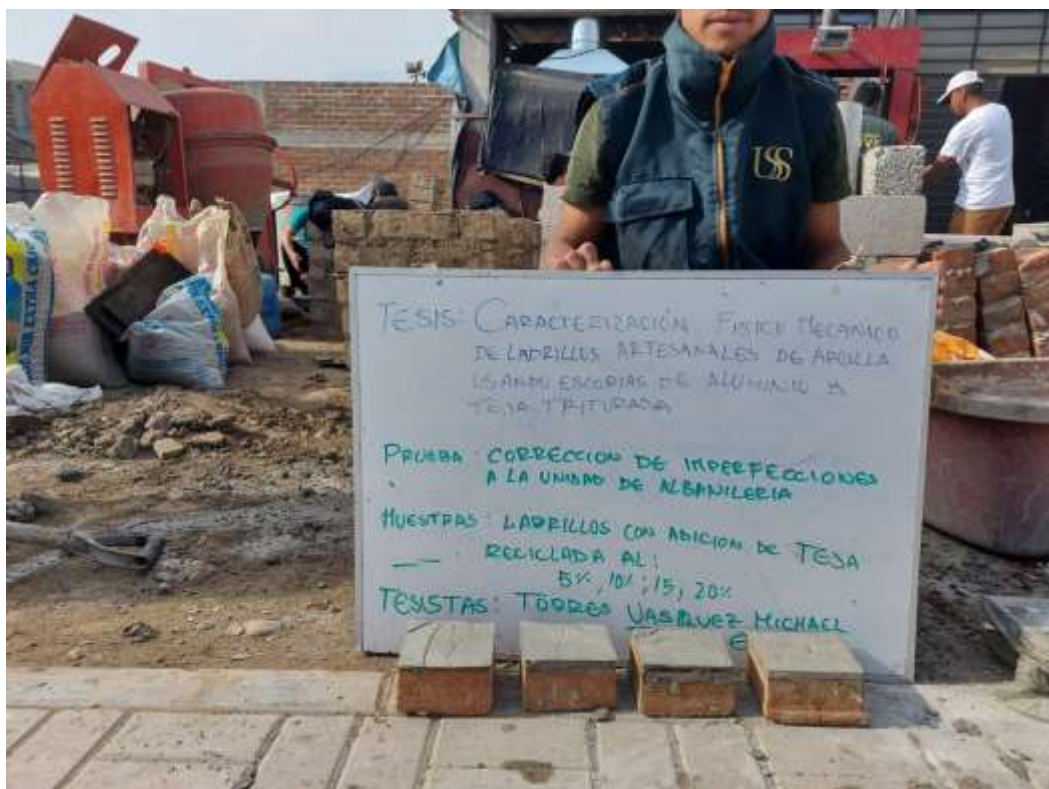 USS
TESIS: CARACTERIZACIÓN FISICO MECANICO
DE LADRILLOS ARTESANALES DE ARCILLA
USANDO ESCORIAS DE ALUMINIO Y
TEJA TRITURADA
PRUEBA: CORRECCION DE IMPERFECCIONES
A LA UNIDAD DE ALBAÑILERIA
MUESTRAS: LADRILLOS CON ADICION DE TEJA
RECICLADA AL:
5%, 10%; 15, 20%
TESISTAS: TORRES VASQUEZ MICHAEL